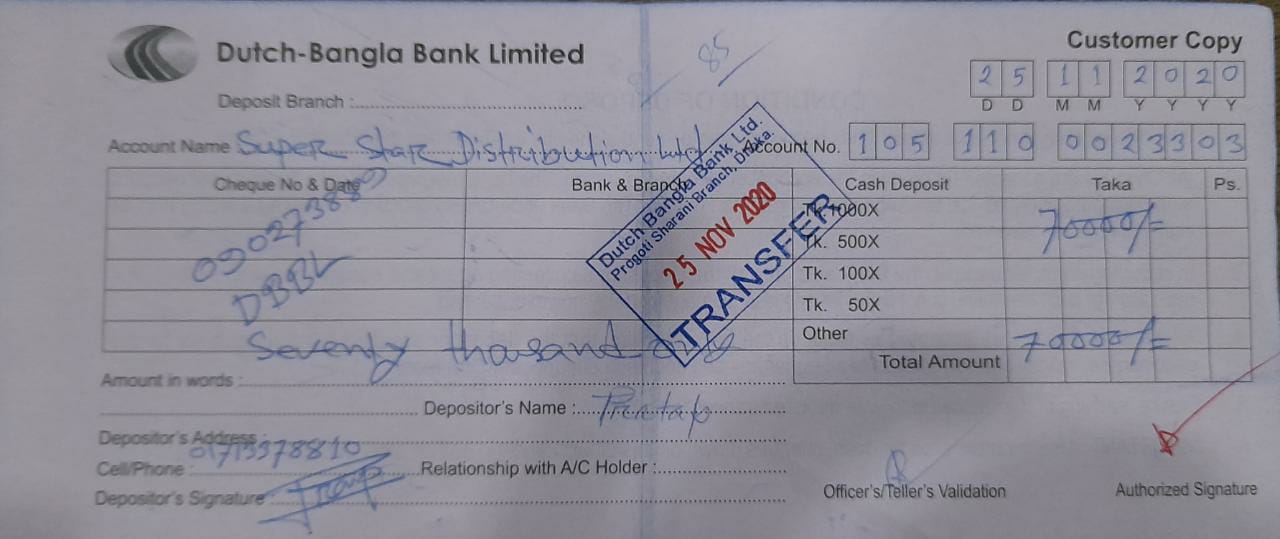 85
Dutch-Bangla Bank Limited
Customer Copy
25 11 2020
D D M M Y Y Y Y
Deposit Branch :
Account Name Super Star Distribution Ltd. Account No. 105 110 0023303
Cheque No & Date Bank & Branch Cash Deposit Taka Ps.
Tk. 1000X 70000/=
Tk. 500X
Tk. 100X
Tk. 50X
Other
Total Amount 70000/=
DBBL
Dutch Bangla Bank Ltd.
Progoti Sharani Branch, Dhaka.
25 NOV 2020
TRANSFER
Amount in words : Seventy thasand only
Depositor's Name : Pratap
Depositor's Address :
Cell/Phone : Relationship with A/C Holder :
Depositor's Signature :
Officer's/Teller's Validation
Authorized Signature